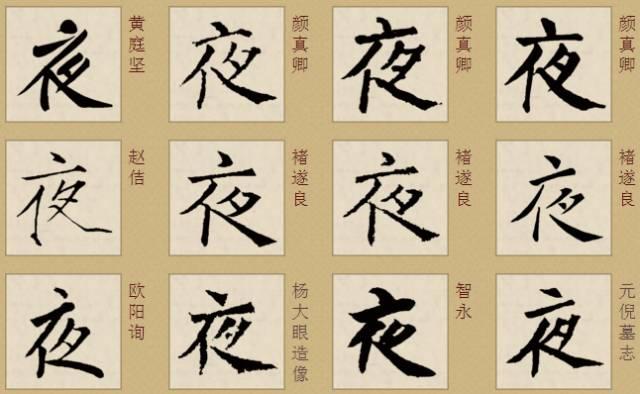 夜 黄庭坚
夜 颜真卿
夜 颜真卿
夜 颜真卿
夜 赵佶
夜 褚遂良
夜 褚遂良
夜 褚遂良
夜 欧阳询
夜 杨大眼造像
夜 智永
夜 元倪墓志